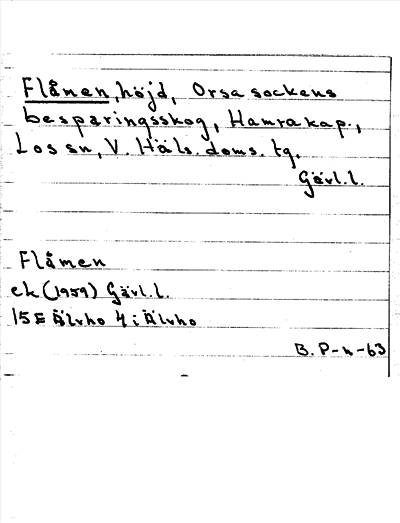 Flåmen, höjd, Orsa sockens
besparingsskog, Hamra kap.,
Los sn, V. Häls. doms. tg.
Gävl. l.
Flåmen
ek (1959) Gävl. l.
15E Älvho 4 i Älvho
B. P-n -63